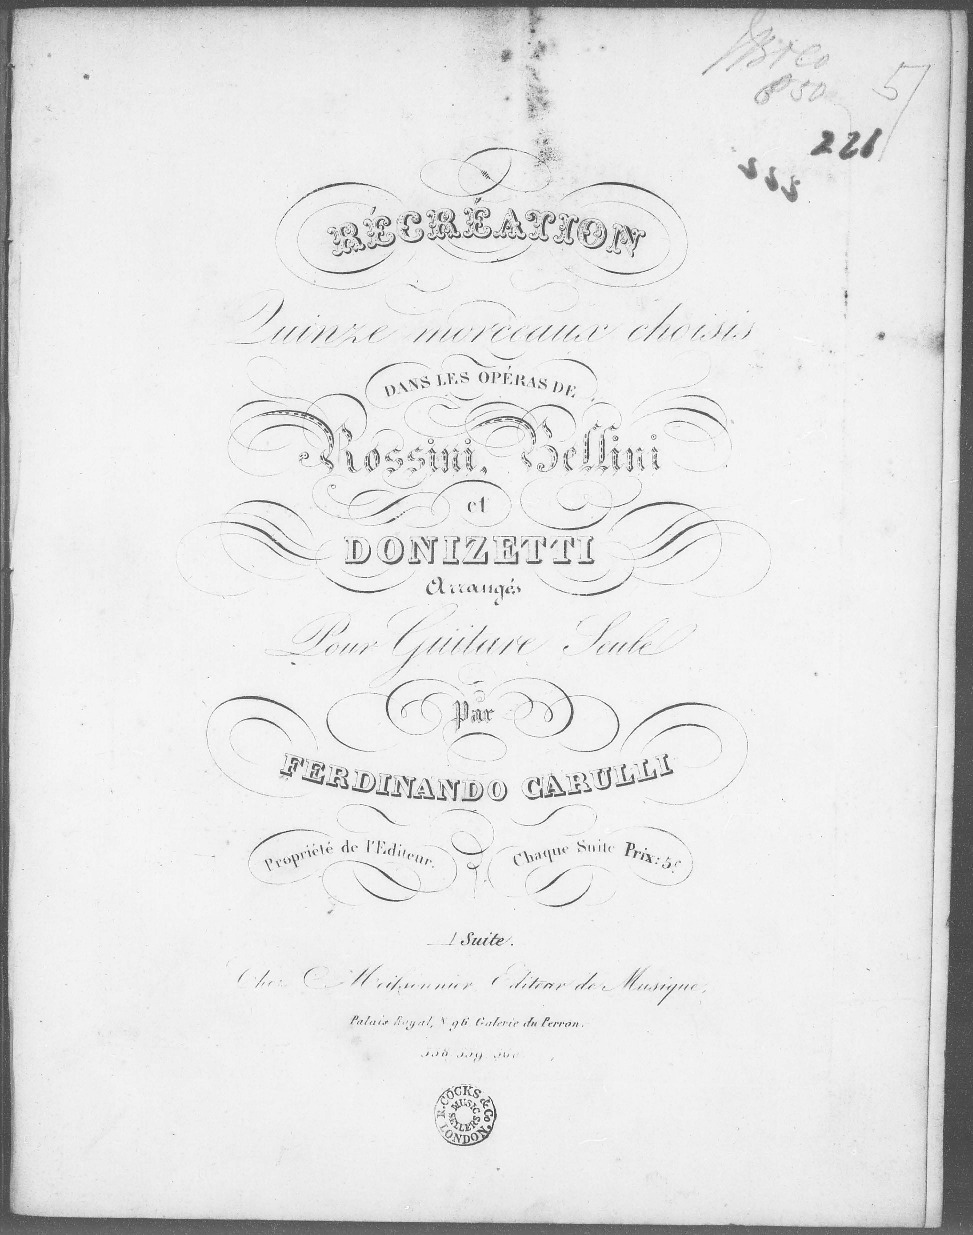 850
5
226
RÉCRÉATION
Quinze morceaux choisis
DANS LES OPÉRAS DE
Rossini, Bellini
et
DONIZETTI
Arrangés
Pour Guitare Seule
Par
FERDINANDO CARULLI
Propriété de l'Editeur. Chaque Suite Prix: 5f
1 Suite.
Chez Meissonnier Editeur de Musique,
Palais Royal, N 96 Galerie du Perron.
R. COCKS & Co.
MUSIC
SELLERS
LONDON